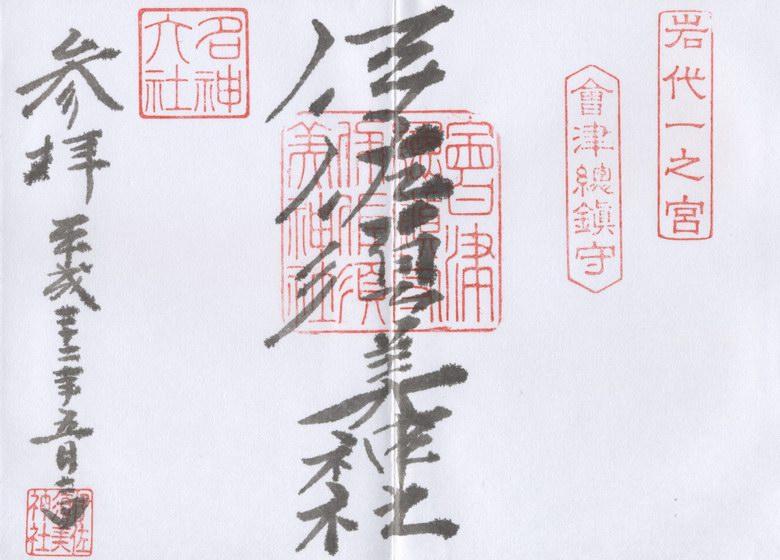 岩代一之宮
會津總鎮守
伊佐須美神社
會津
伊佐須
美神社
名神大社
参拝
平成二十二年五月
伊佐
須美
神社